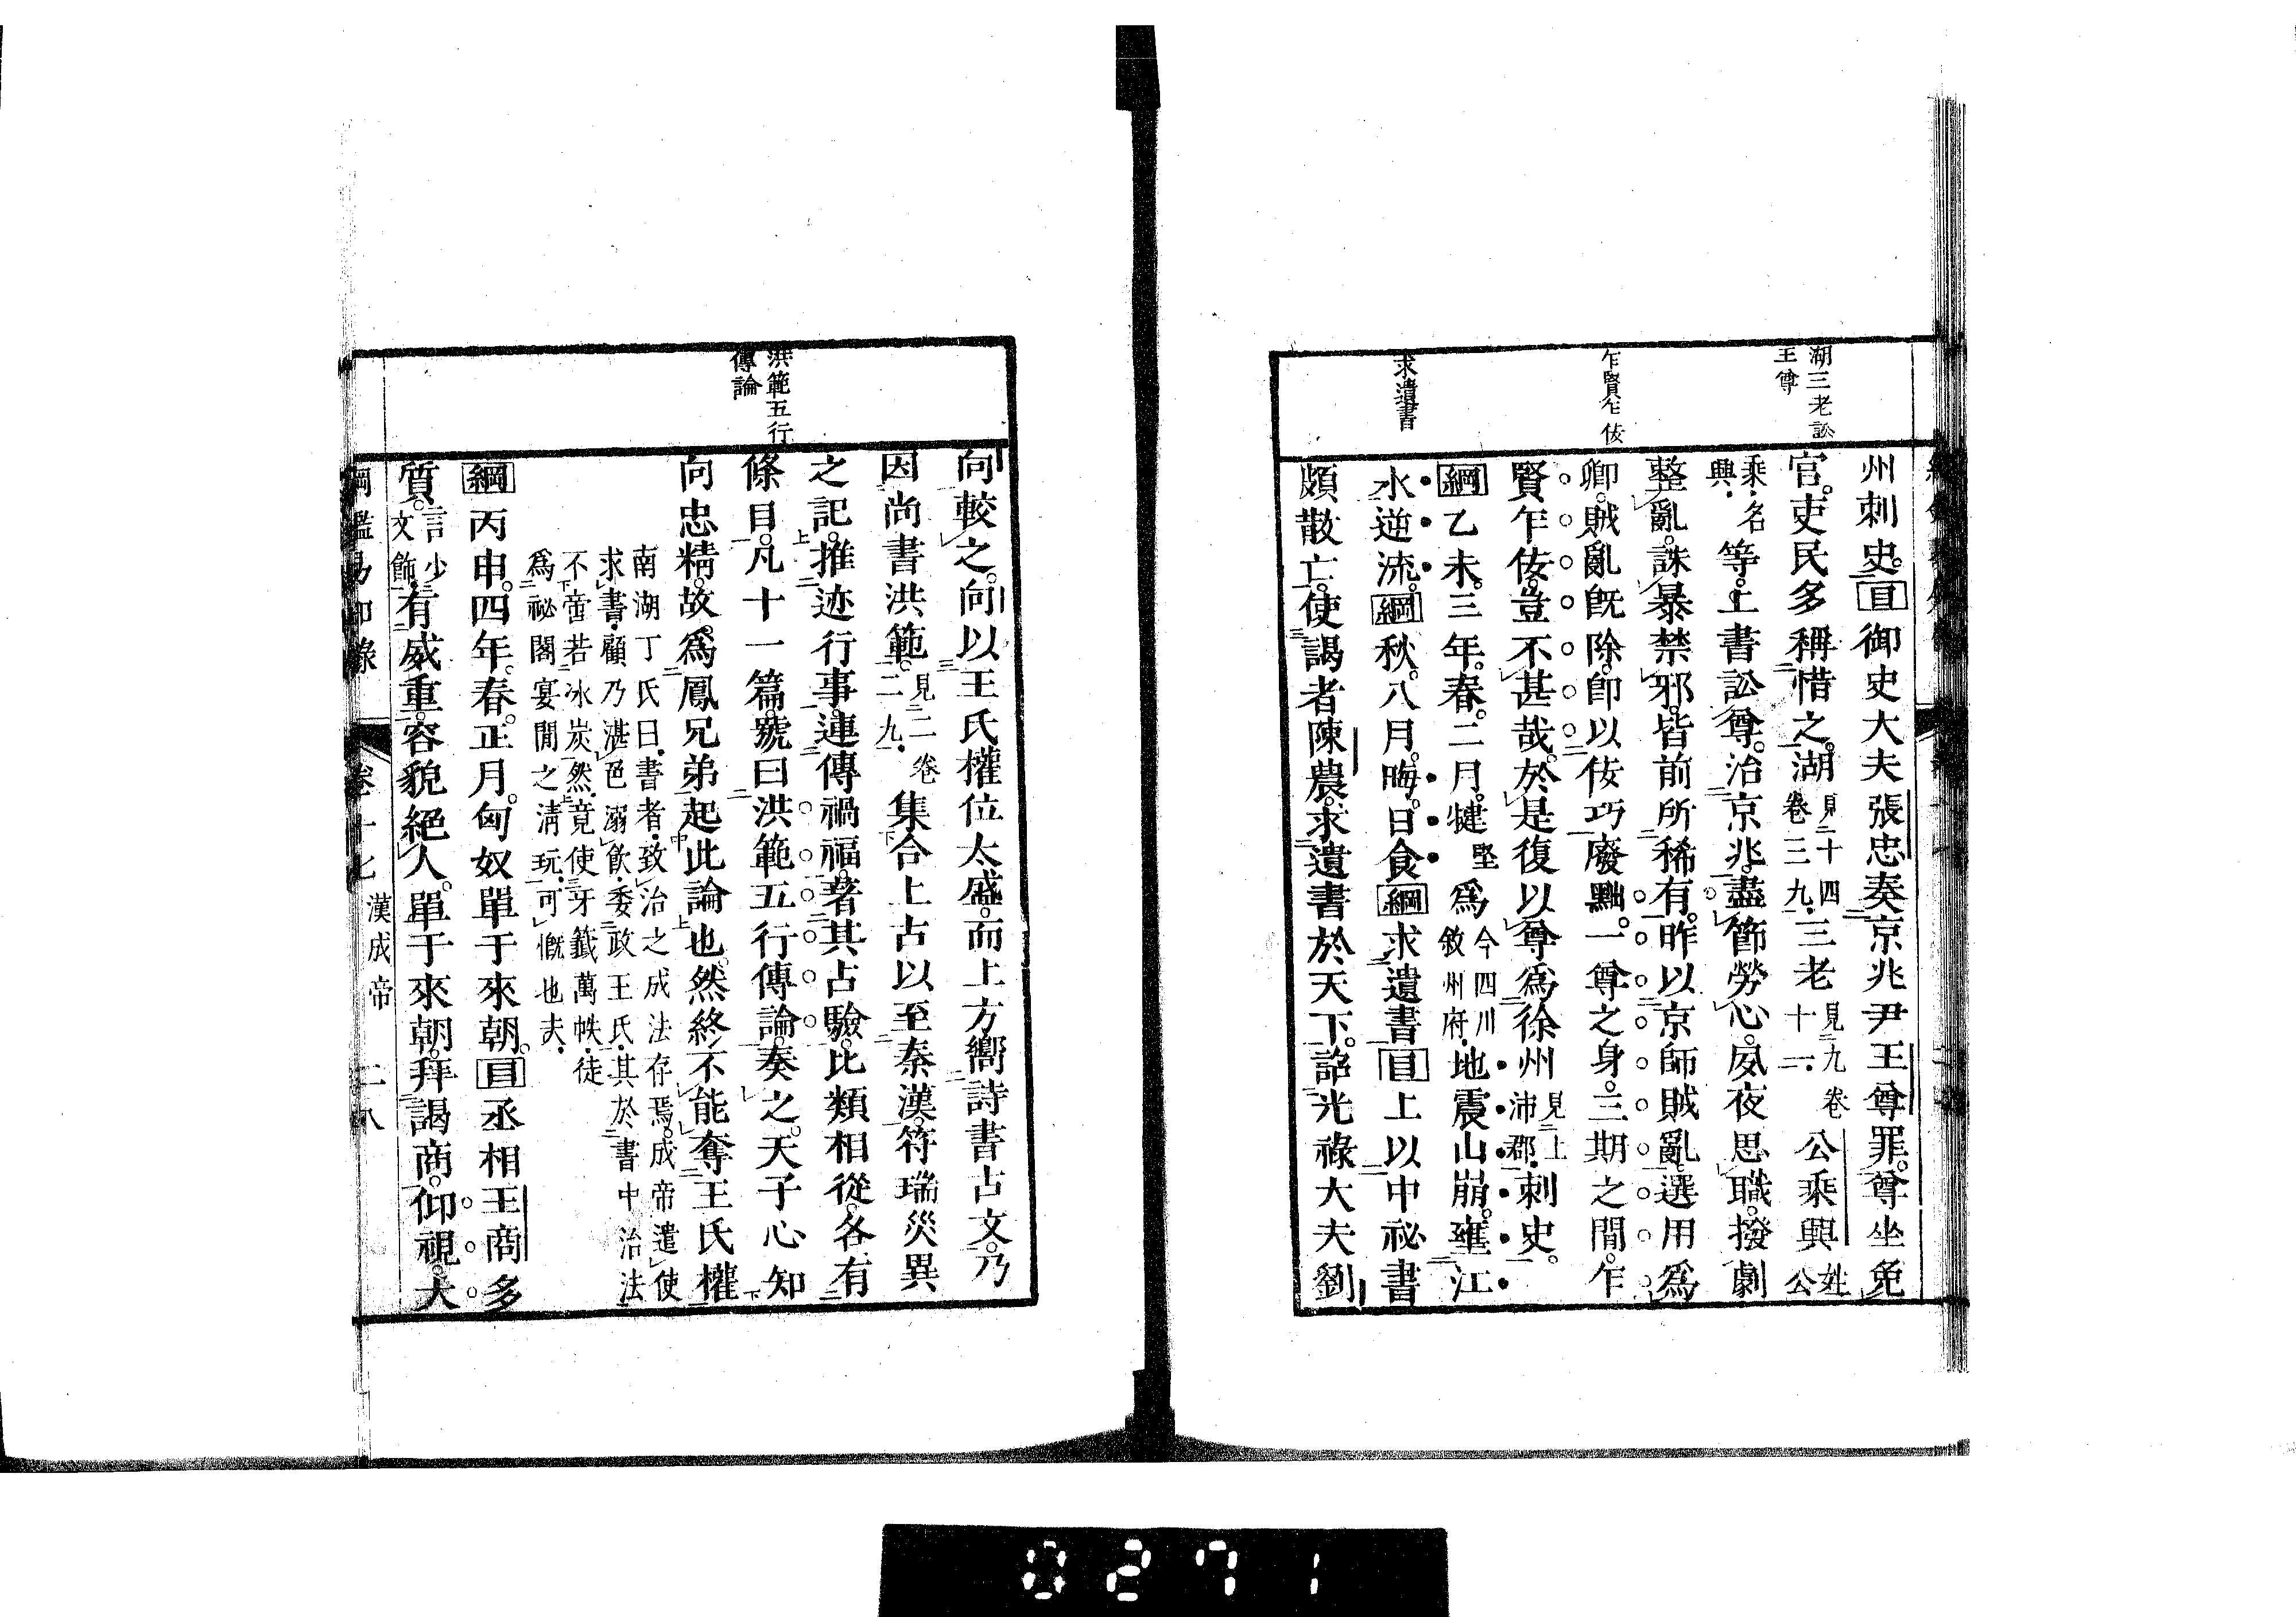 湖三老訟
王尊
乍賢乍佞
求遺書
州刺史。目御史大夫張忠奏京兆尹王尊罪。尊坐免
官。吏民多稱惜之。湖見十四卷三九。三老見九卷十一。公乘興姓公
乘。名興。等。上書訟尊。治京兆。盡節勞心。夙夜思職。撥劇
整亂。誅暴禁邪。皆前所稀有。昨以京師賊亂。選用爲
卿。賊亂旣除。卽以佞巧廢黜。一尊之身。三期之閒。乍
賢乍佞。豈不甚哉。於是復以尊爲徐州見上沛郡。刺史。
綱乙未。三年。春。二月。犍堅爲今四川敘州府。地震山崩。壅江
水逆流。綱秋。八月。晦。日食。綱求遺書。目上以中祕書
頗散亡。使謁者陳農。求遺書於天下。詔光祿大夫劉
洪範五行
傳論
向較之。向以王氏權位太盛。而上方嚮詩書古文。乃
因尚書洪範。見二卷二九。集合上古以至秦漢。符瑞災異
之記。推迹行事。連傳禍福。著其占驗。比類相從。各有
條目。凡十一篇。號曰洪範五行傳論。奏之。天子心知
向忠精。故爲鳳兄弟起此論也。然終不能奪王氏權
南湖丁氏曰。書者。致治之成法存焉。成帝遣使
求書。顧乃湛色溺飮。委政王氏。其於書中治法
不啻若冰炭然。竟使牙籤萬帙。徒
爲祕閣宴閒之淸玩。可慨也夫。
綱丙申。四年。春。正月。匈奴單于來朝。目丞相王商多
質。言少文飾。有威重。容貌絕人。單于來朝。拜謁商。仰視。大
綱鑑易知錄 卷十七 漢成帝 二八
0271